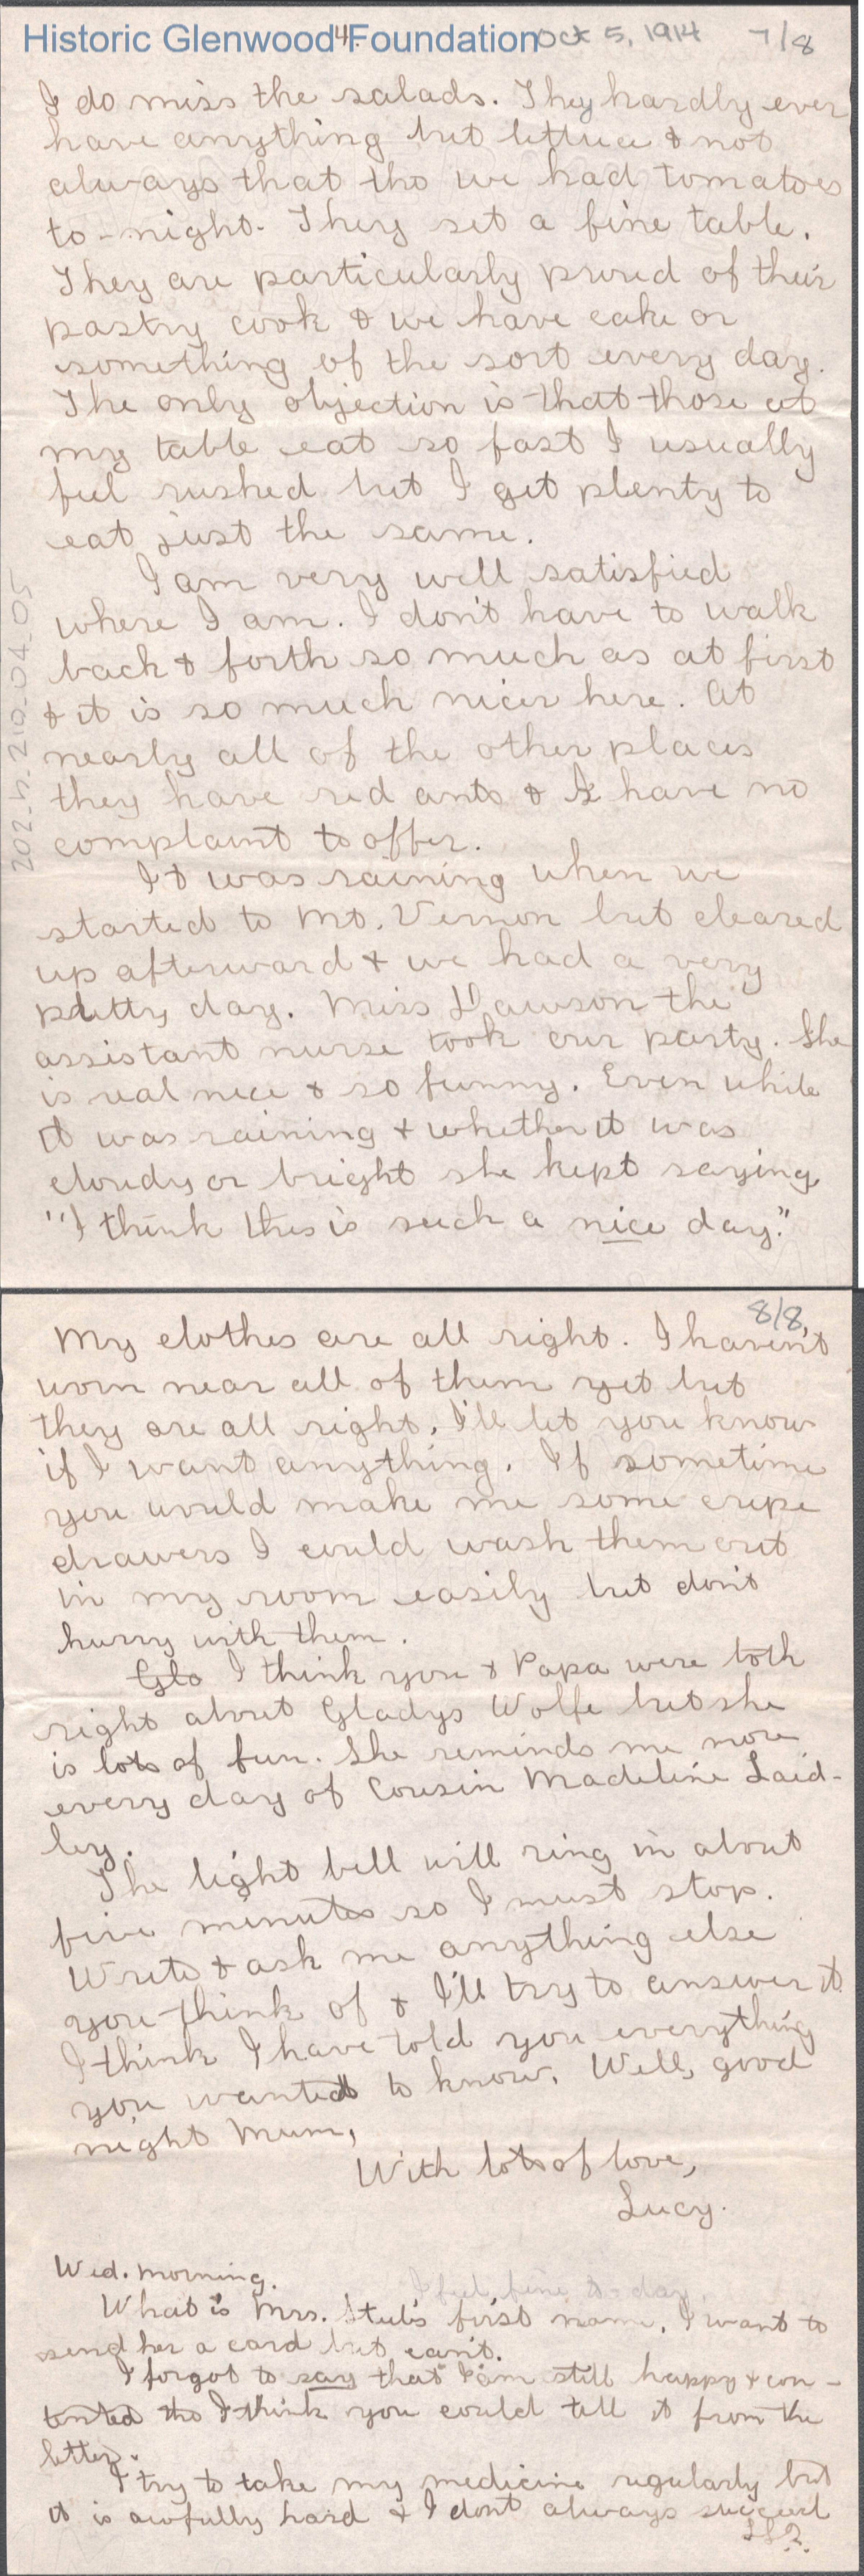 Historic Glenwood Foundation
4.
Oct 5, 1914 7/8
I do miss the salads. They hardly ever
have anything but lettuce & not
always that tho we had tomatoes
to-night. They set a fine table.
They are particularly proud of their
pastry cook & we have cake or
something of the sort every day.
The only objection is that those at
my table eat so fast I usually
feel rushed but I get plenty to
eat just the same.
I am very well satisfied
where I am. I don't have to walk
back & forth so much as at first
& it is so much nicer here. At
nearly all of the other places
they have red ants & I have no
complaint to offer.
It was raining when we
started to Mt. Vernon but cleared
up afterward & we had a very
pretty day. Miss Dawson the
assistant nurse took our party. She
is real nice & so funny. Even while
it was raining & whether it was
cloudy or bright she kept saying
"I think this is such a nice day."
202_h_210_04_05
8/8
My clothes are all right. I haven't
worn near all of them yet but
they are all right. I'll let you know
if I want anything. If sometime
you would make me some crepe
drawers I could wash them out
in my room easily but don't
hurry with them.
Gla I think you & Papa were both
right about Gladys Wolfe but she
is lots of fun. She reminds me more
every day of Cousin Madeline Laid-
ley.
The light bell will ring in about
five minutes so I must stop.
Write & ask me anything else
you think of & I'll try to answer it.
I think I have told you everything
you wanted to know. Well, good
night Mum,
With lots of love,
Lucy.
Wed. morning.
I feel fine to-day.
What is Mrs. first name. I want to
send her a card but can't.
I forgot to say that I am still happy & con-
tented tho I think you could tell it from the
letter.
I try to take my medicine regularly but
it is awfully hard & I don't always succeed